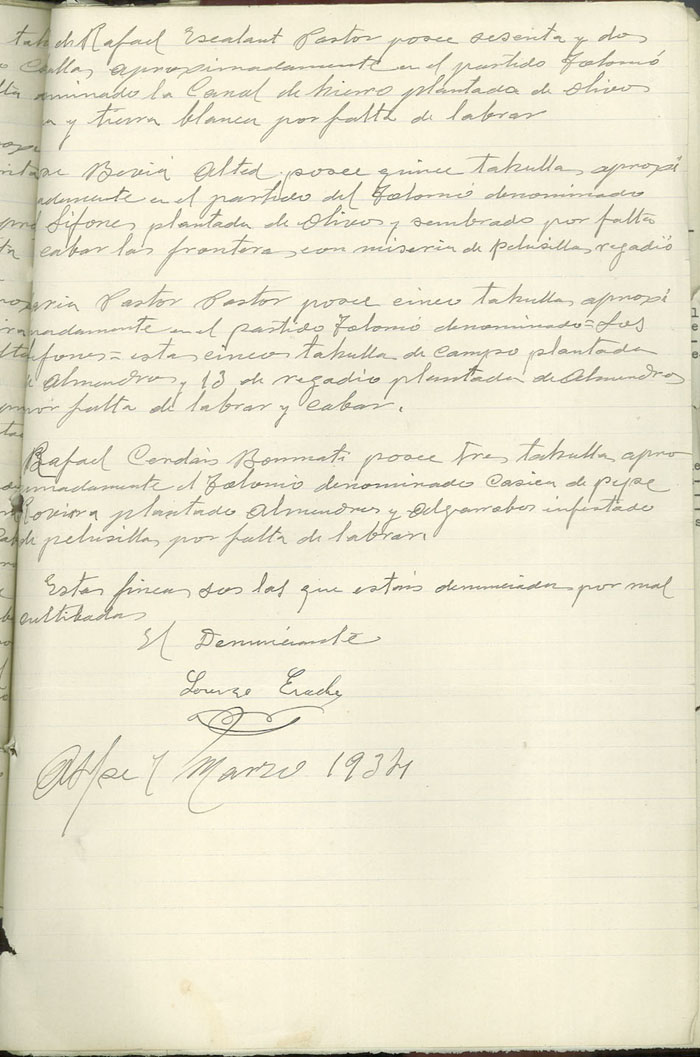 Rafael Escalant Pastor posee sesenta y dos
aproximadamente en el partido Tolomó
minado la Canal de hierro plantada de Olivos
y tierra blanca por falta de labrar
Beviá Alted posee quince tahullas aproxi
adamente en el partido del Tolomó denominado
Sifones plantada de Olivos y sembrado por falta
cabar las fronteras con miseria de pelusillas regadio
Pastor Pastor posee cinco tahullas aproxi
madamente en el partido Tolomó denominado=Los
fones= estas cincos tahulla de campo plantada
Almendros y 13 de regadio plantada de Almendros
por falta de labrar y cabar.
Rafael Cerdán Bonmati posee tres tahulla apro
madamente el Tolomó denominado Casica de pepe
Rovira plantado Almendros y Algarrobos infestado
de pelusillas por falta de labrar
Estas fincas sos las que están denunciadas por mal
cultibadas
El Denunciante
Lorenzo
Aspe 7 Marzo 1934